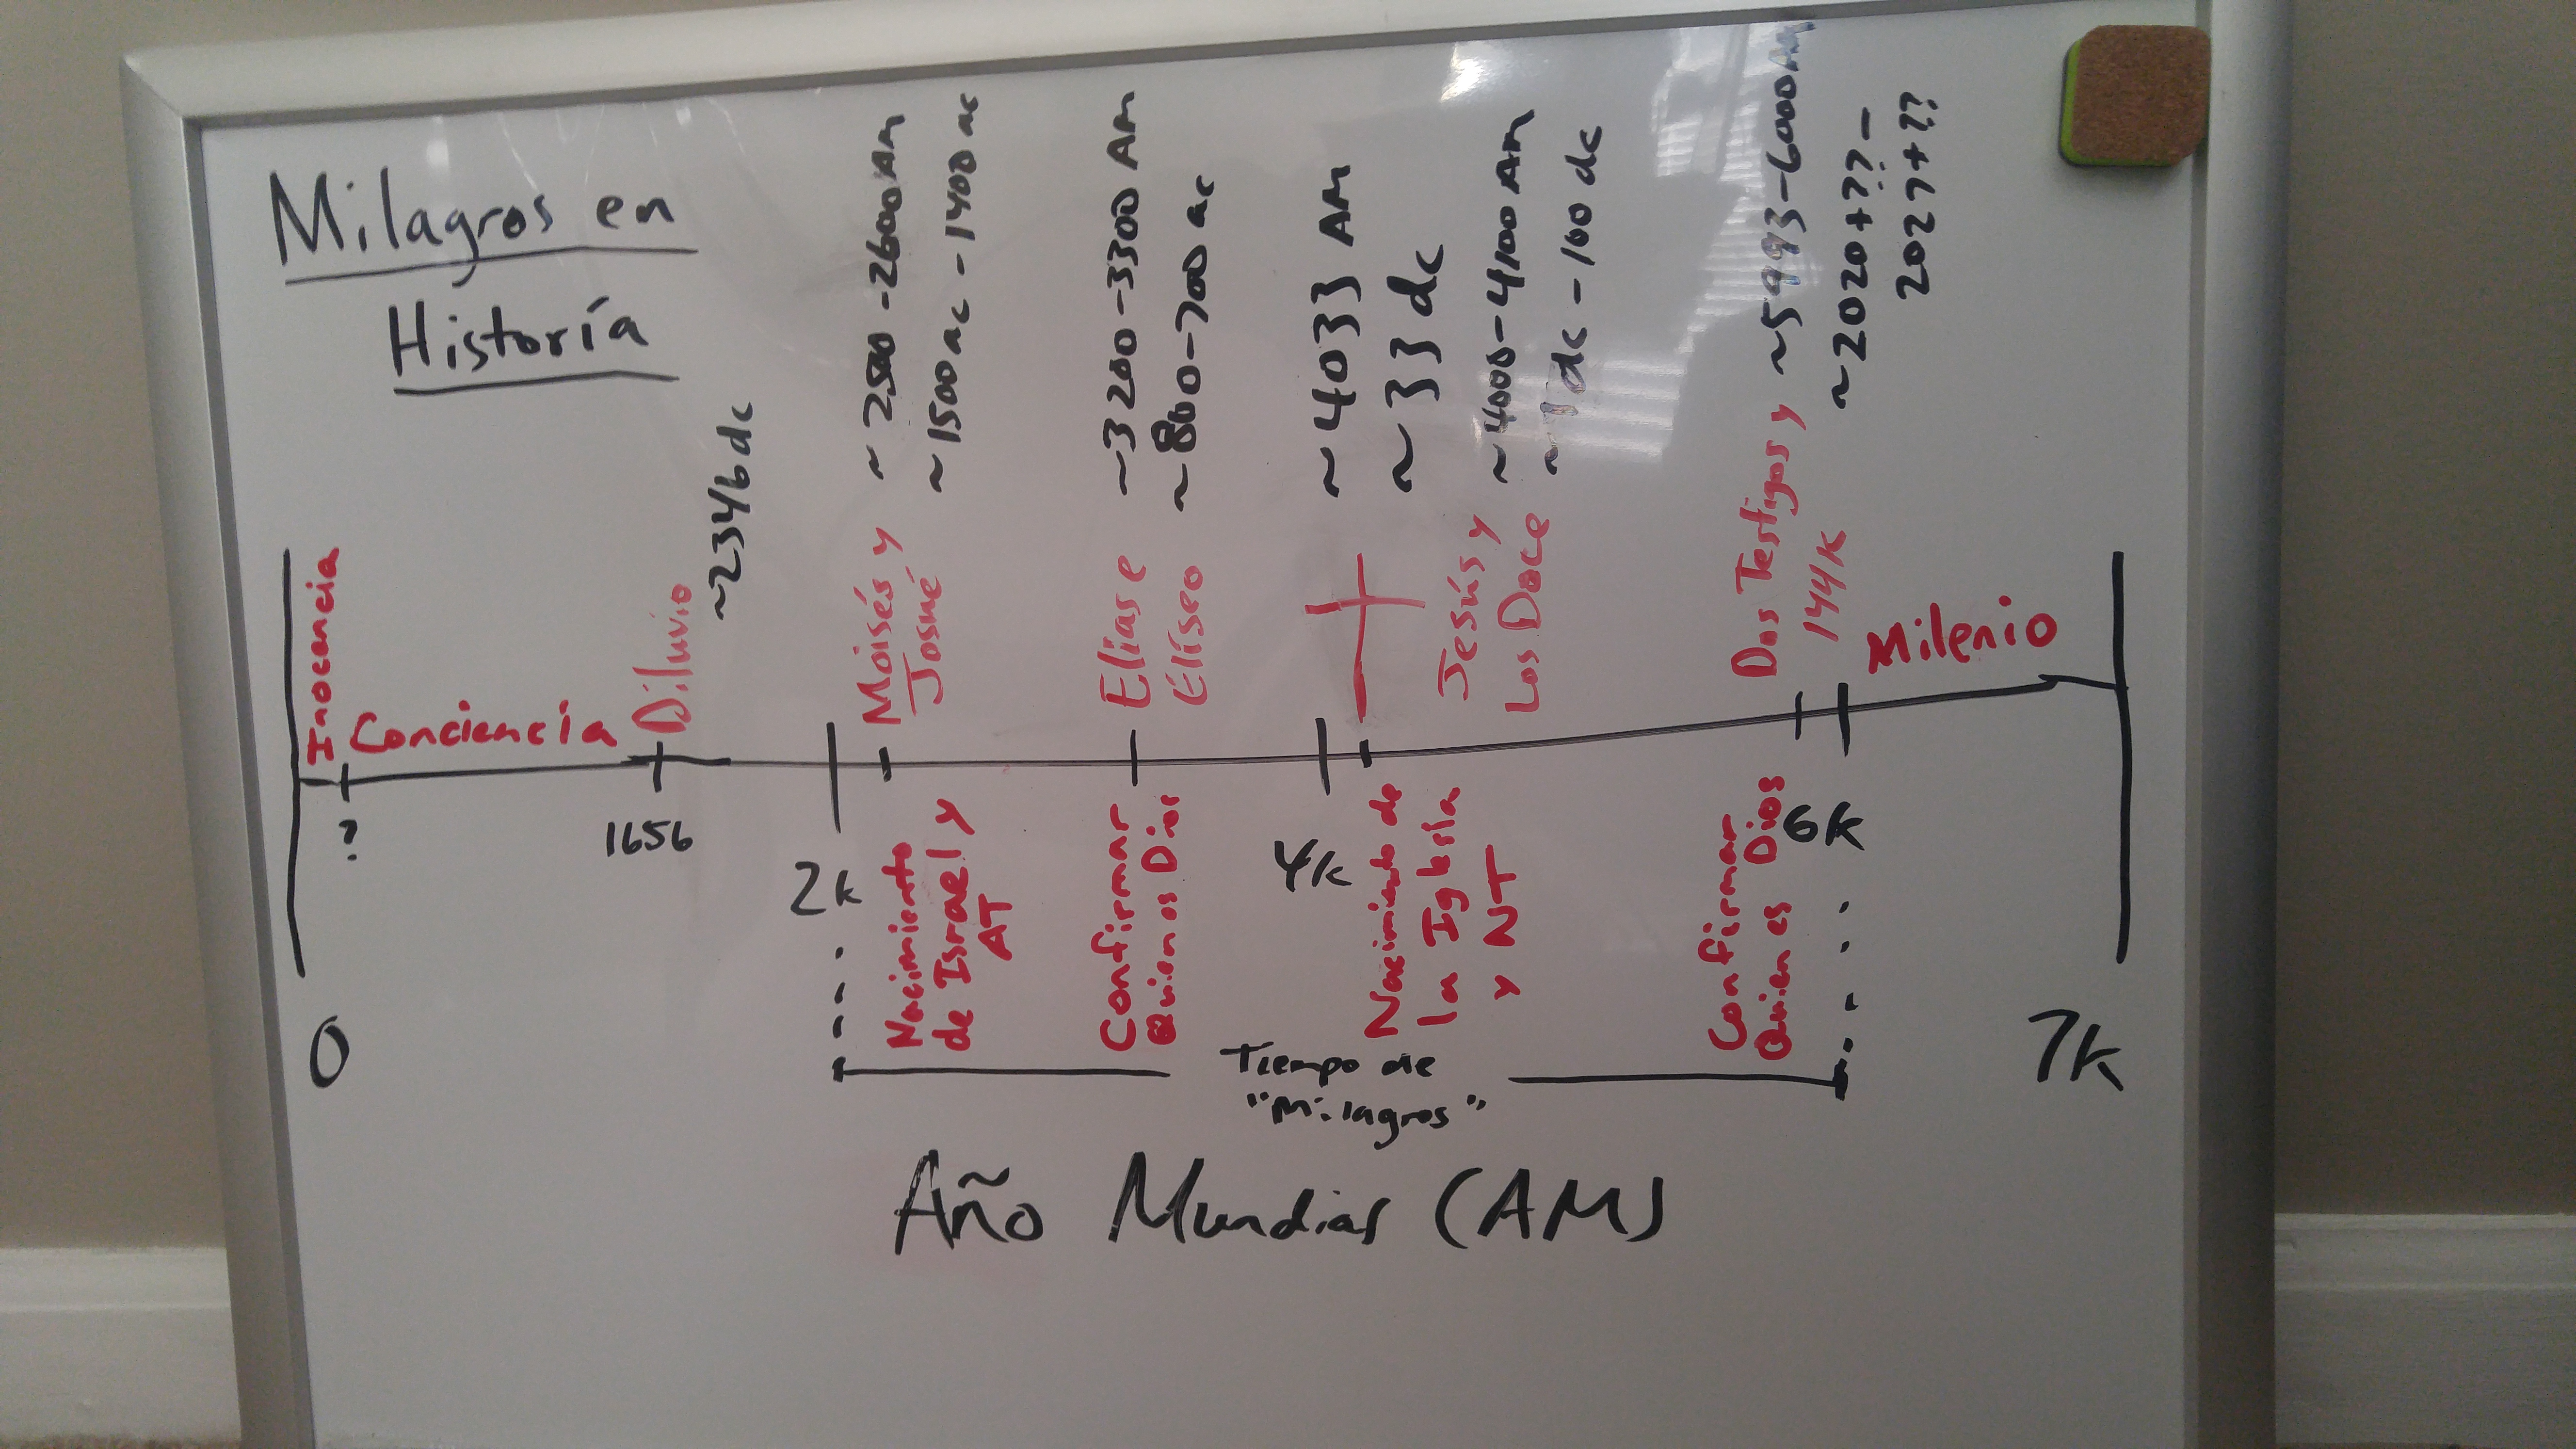 Milagros en
Historía
Inocencia
Conciencia
Diluvio
~2346 dc
Moisés y
Josué
~2500-2600 AM
~1500 ac - 1400 ac
Elias e
Éliseo
~3200-3300 AM
~800-700 ac
~4033 AM
~33 dc
Jesús y
Los Doce
~4000-4100 AM
~1 dc - 100 dc
Dos Testigos y
144k
~5993-6000 AM
~2020+?? -
2027+??
Milenio
?
1656
2k
Nacimiento
de Israel y
AT
Confirmar
Quien es Dios
4k
Nacimiento de
la Iglesia
y NT
Confirmar
Quien es Dios
6k
0
7k
Tiempo de
"Milagros"
Año Mundias (AM)